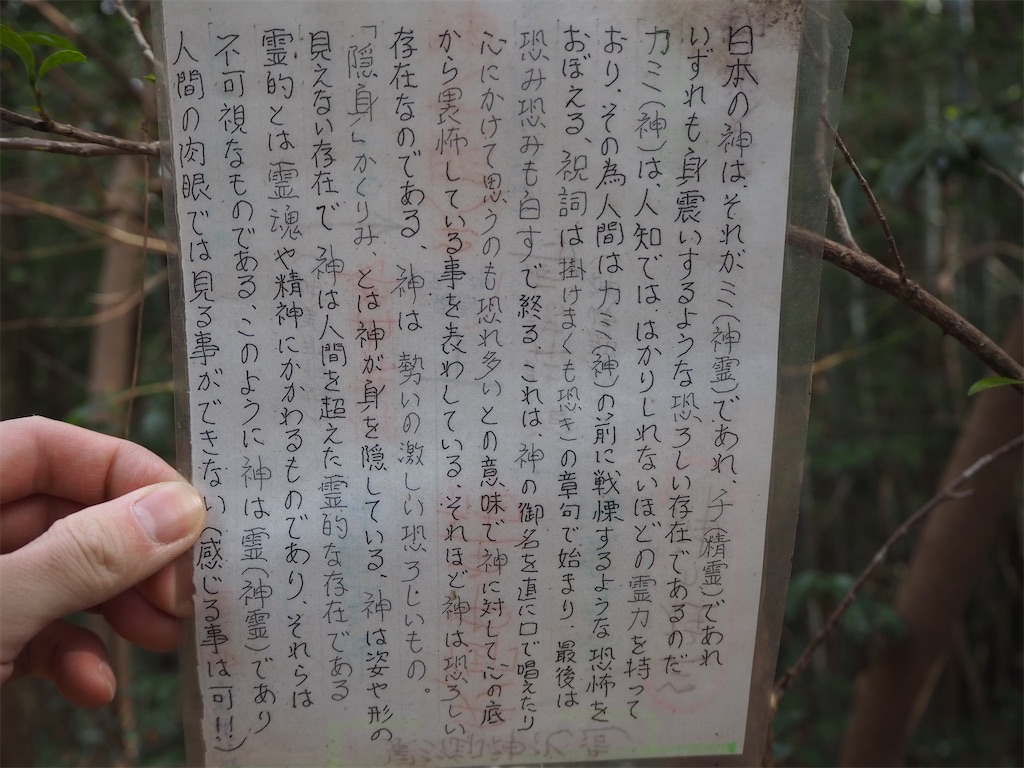 日本の神は、それがミ(神霊)であれ、チ(精霊)であれ
いずれも身震いするような恐ろしい存在であるのだ
カミ(神)は、人知では、はかりしれないほどの霊力を持って
おり、その為、人間はカミ(神)の前に戦慄するような恐怖を
おぼえる、祝詞は掛けまくも恐き の章句で始まり、最後は
恐み恐みも白すで終る、これは、神の御名を直に口で唱えたり
心にかけて思うのも恐れ多いとの意味で神に対して心の底
から畏怖している事を表わしている、それほど神は恐ろしい
存在なのである、神は 勢いの激しい恐ろしいもの。
「隠身」かくりみ、とは神が身を隠している、神は姿や形の
見えない存在で 神は人間を超えた霊的な存在である
霊的とは霊魂や精神にかかわるものであり、それらは
不可視なものである、このように神は霊(神霊)であり
人間の肉眼では見る事ができない(感じる事は可!!)